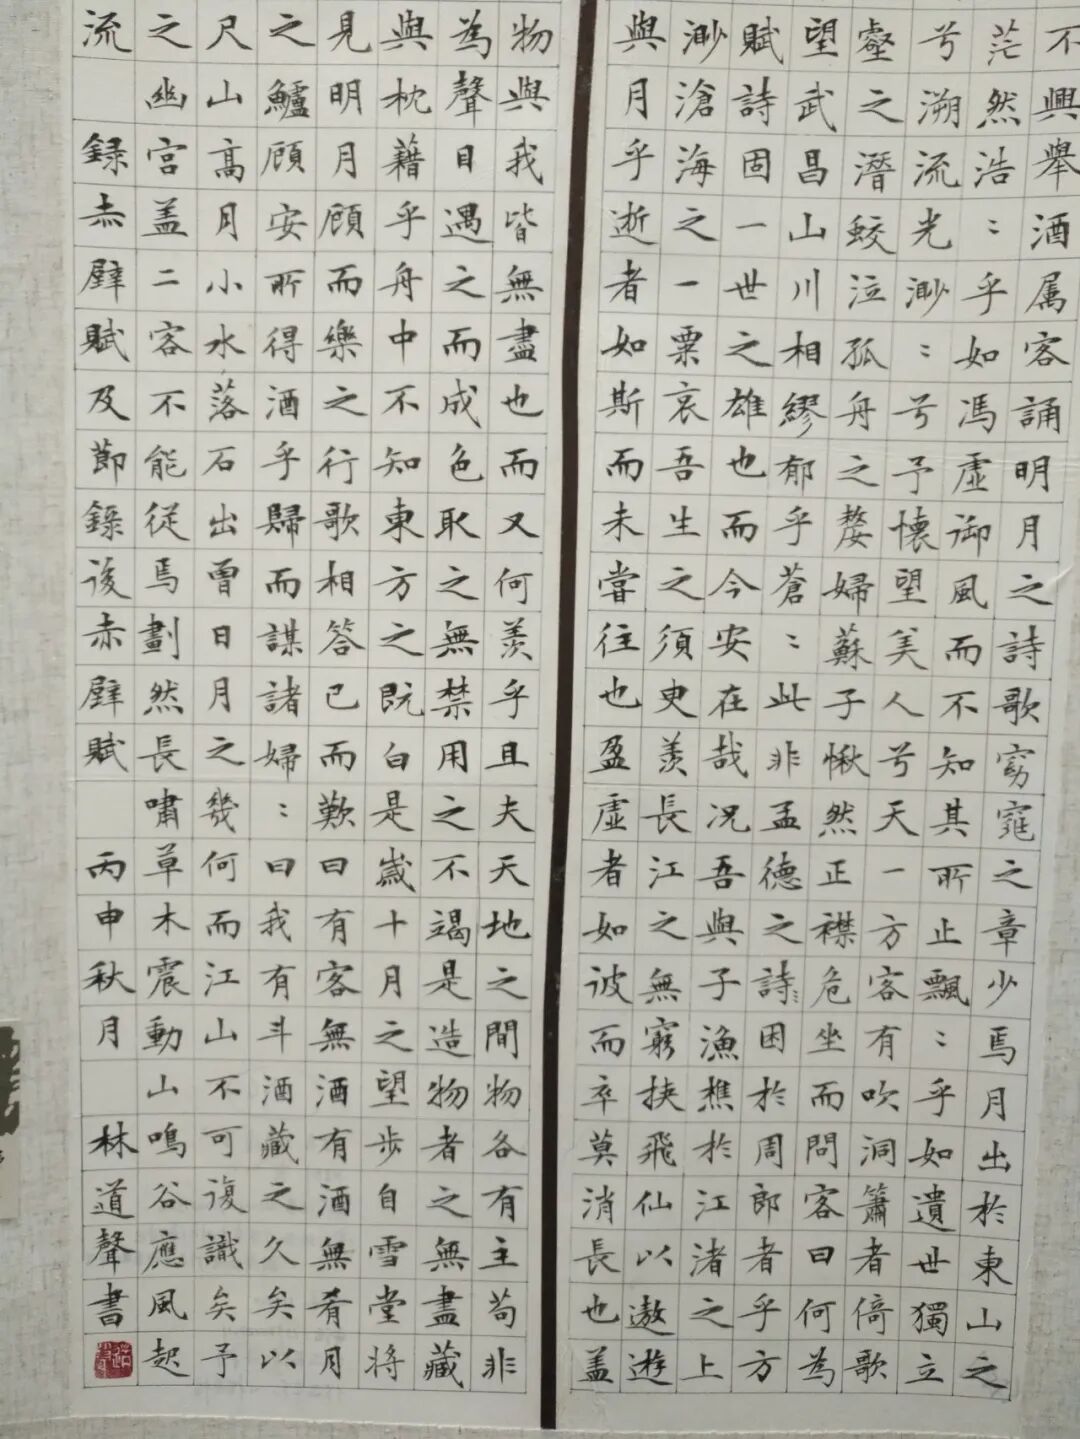 不興舉酒属客誦明月之詩歌窈窕之章少焉月出於東山之
茫然浩〻乎如馮虛御風而不知其所止飄〻乎如遺世獨立
兮溯流光渺〻兮予懷望美人兮天一方客有吹洞簫者倚歌
壑之潛蛟泣孤舟之嫠婦蘇子愀然正襟危坐而問客曰何為
望武昌山川相繆郁乎蒼〻此非孟德之詩〻困於周郎者乎方
賦詩固一世之雄也而今安在哉況吾與子漁樵於江渚之上
渺滄海之一粟哀吾生之須臾羨長江之無窮挾飛仙以遨遊
與月乎逝者如斯而未嘗往也盈虛者如彼而卒莫消長也盖
物與我皆無盡也而又何羨乎且夫天地之間物各有主苟非
為聲目遇之而成色取之無禁用之不竭是造物者之無盡藏
與枕藉乎舟中不知東方之既白是歲十月之望步自雪堂將
見明月顧而樂之行歌相答已而歎曰有客無酒有酒無肴月
之鱸顧安所得酒乎歸而謀諸婦〻曰我有斗酒藏之久矣以
尺山高月小水落石出曾日月之幾何而江山不可復識矣予
之幽宮盖二客不能從焉劃然長嘯草木震動山鳴谷應風起
流 録赤壁賦及節錄後赤壁賦 丙申秋月 林道聲書